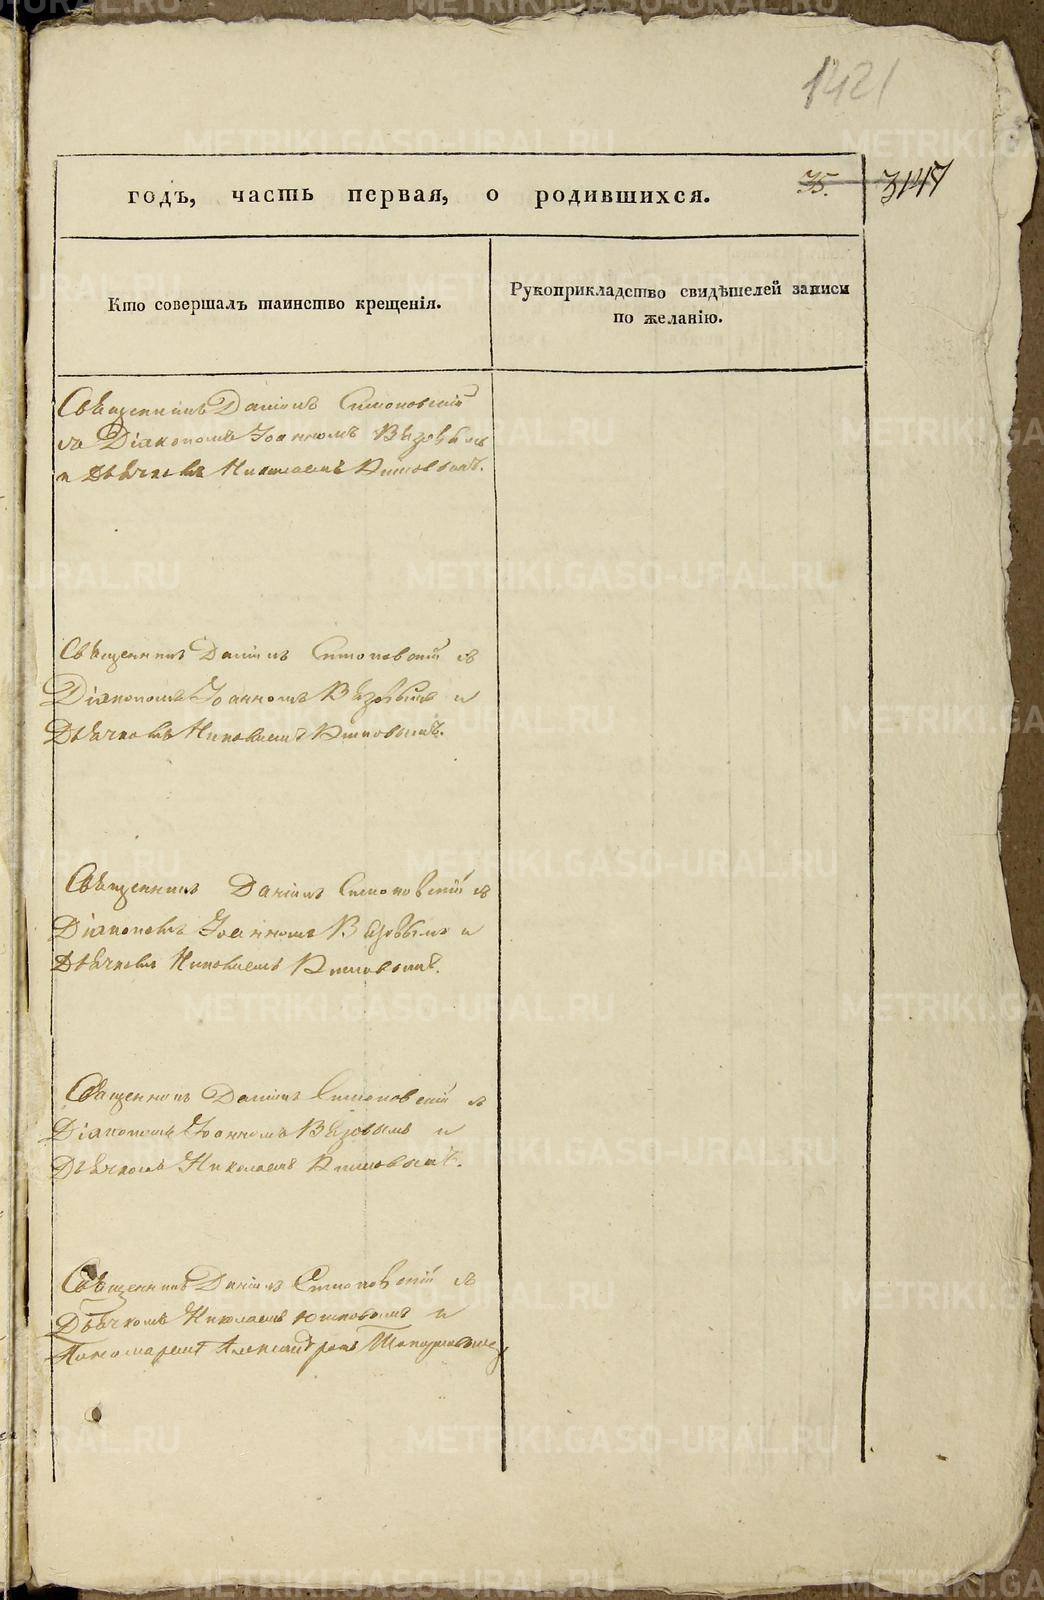 1421
годъ, часть первая, о родившихся. 35. 3147
Кто совершалъ таинство крещенія.
Рукоприкладство свидѣтелей записи
по желанію.
Священникъ Даніилъ Симоновскій
съ Діакономъ Іоанномъ
и Дьячкомъ Николаемъ
Священникъ Даніилъ Симоновскій съ
Діакономъ Іоанномъ и
Дьячкомъ Николаемъ
Священникъ Даніилъ Симоновскій съ
Діакономъ Іоанномъ и
Дьячкомъ Николаемъ
Священникъ Даніилъ Симоновскій съ
Діакономъ Іоанномъ и
Дьячкомъ Николаемъ
Священникъ Даніилъ Симоновскій съ
Дьячкомъ Николаемъ и
Пономаремъ Александромъ
METRIKI.GASO-URAL.RU